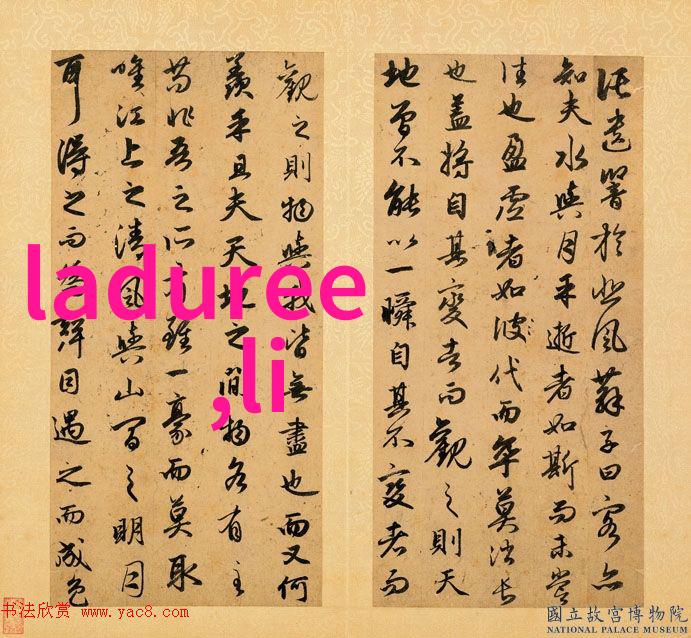 託遺響於悲風蘇子曰客亦
知夫水與月乎逝者如斯而未嘗
往也盈虛者如彼代而卒莫消長
也蓋將自其變者而觀之則天
地曾不能以一瞬自其不變者而
觀之則物與我皆無盡也而又何
羨乎且夫天地之間物各有主
苟非吾之所有雖一豪而莫取
唯江上之清風與山間之明月
耳得之而為聲目遇之而成色
laduree
,li
书法欣赏 www.yac8.com
國立故宮博物院
NATIONAL PALACE MUSEUM